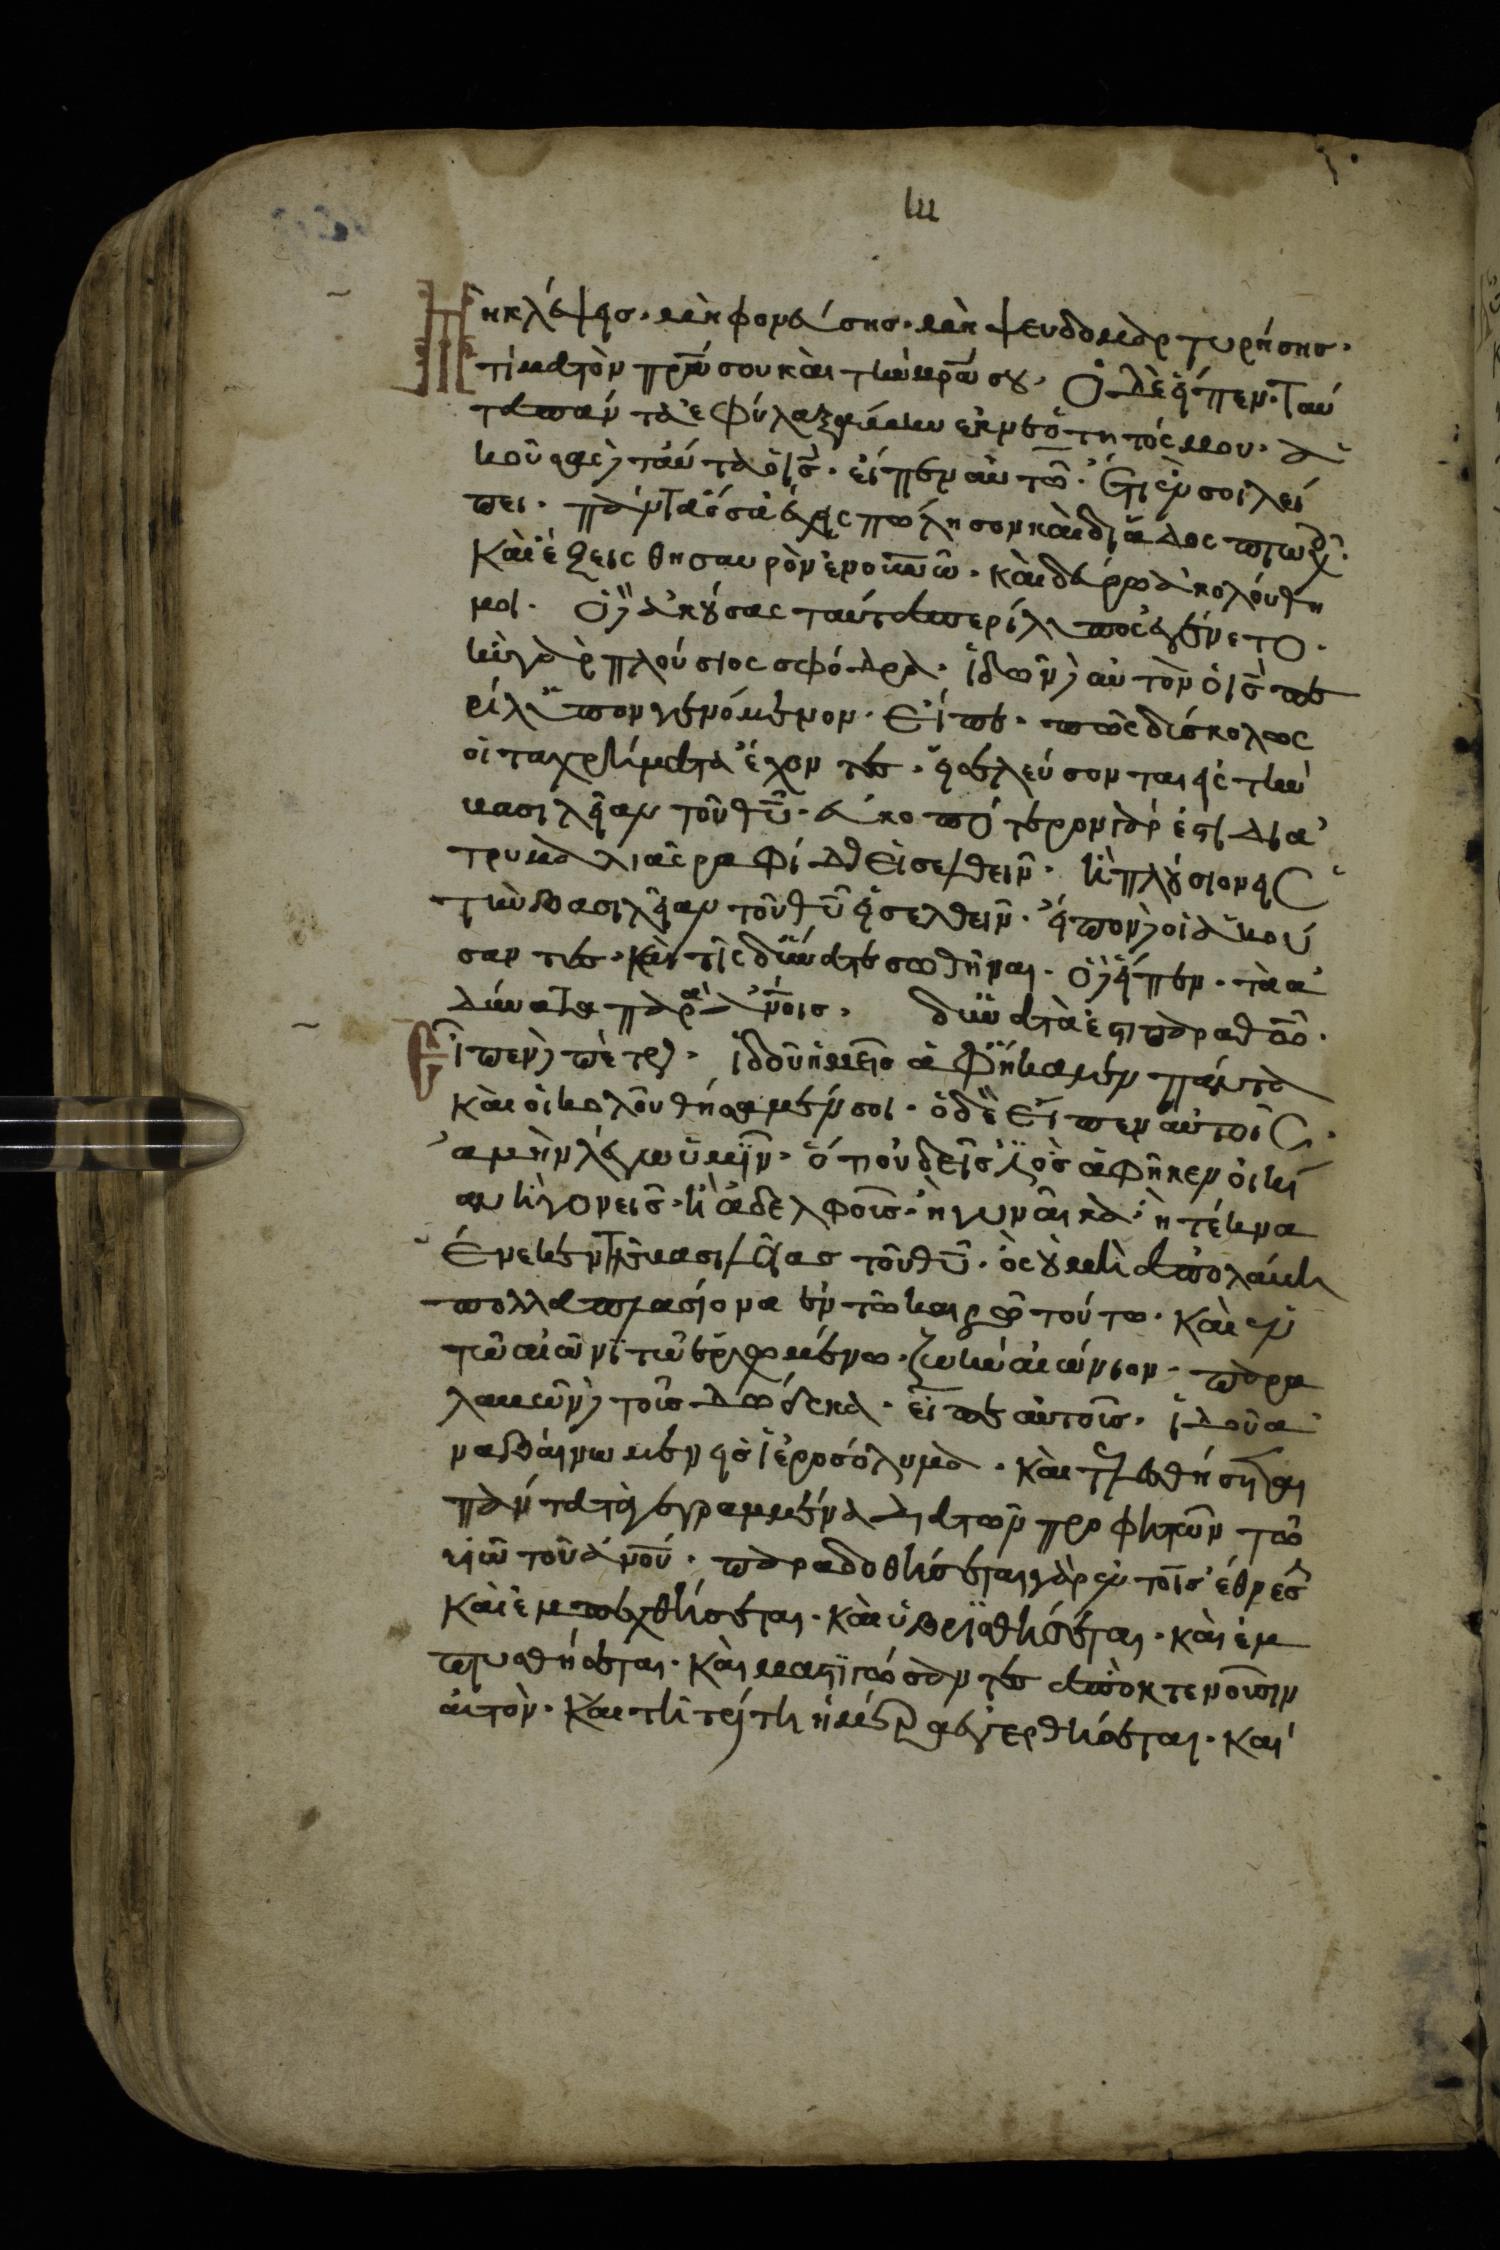 Μὴ κλέψης· μὴ φονεύσης· μὴ ψευδομαρτυρήσης·
τίμα τὸν πρ̅α̅ σου καὶ τὴν μρ̅α̅ σου· Ὁ δὲ εἶπεν· ταῦ
τα πάντα ἐφυλαξάμην ἐκ νεότητός μου· ἀ
κούσας δὲ ταῦτα ὁ ι̅ς̅· εἶπεν αὐτῶ· ἔτι ἕν σοι λεί
πει· πάντα ὅσα ἔχεις πώλησον καὶ διάδος πτωχοῖς·
καὶ ἕξεις θησαυρὸν ἐν ου̅νω̅· καὶ δεύρω ἀκολούθη
μοι· Ὁ δὲ ἀκούσας ταῦτα περίλυπος ἐγένετο·
ἦν γὰρ πλούσιος σφόδρα· ἰδὼν δὲ αὐτὸν ὁ ι̅ς̅ πε
ρίλυπον γενόμενον· εἶπε· πῶς δισκόλως
οἱ τα χρήματα ἔχοντες· εἰσελεύσονται εἰς τὴν
βασιλείαν τοῦ θ̅υ̅· εὐκοπώτερον γάρ ἐστι δια
τρυμαλιᾶς ραφίδος εἰσελθεῖν· ἢ πλούσιον εἰς
τὴν βασιλείαν τοῦ θ̅υ̅ εἰσελθεῖν· εἶπον δὲ οἱ ἀκού
σαντες· καὶ τίς δύναται σωθῆναι· ὁ δὲ εἶπεν· τὰ ἀ
δύνατα παρὰ ἀν̅οις· δυνατὰ ἐστι παρὰ θ̅ῶ̅·
Εἶπεν δὲ πέτρος· ἰδοὺ ἡμεῖς ἀφήκαμεν πάντα
καὶ οἰκολουθήσαμέν σοι· ὁ δὲ εἶπεν αὐτοῖς·
ἀμὴν λέγω ὑμῖν· ὅτι οὐδείς ἐστιν ὃς ἀφῆκεν οἰκί
αν ἢ γονεῖς· ἢ ἀδελφοῖς· ἢ γυναῖκα· ἢ τέκνα
ἕνεκεν τῆς βασιλείας τοῦ θ̅υ̅· ὃς οὐ μὴ ἀπολάβη
πολλαπλασίονα ἐν τῶ καιρῶ τούτω· καὶ ἐν
τῶ αἰῶνι τῶ ἐρχομένω· ζωὴν αἰώνιον· παρα
λαβὼν δὲ τοὺς δώδεκα· εἶπε αὐτοῖς· ἰδοὺ ἀ
ναβαίνωμεν εἰς ἱεροσόλυμα· καὶ τελεσθήσηται
πάντα τὰ γεγραμμένα διὰ τῶν προφητῶν τῶ
υἱῶ τοῦ ἀν̅ου̅· παραδοθήσεται γὰρ ἐν τοῖς ἔθνεσι
καὶ ἐμπεχθήσεται· καὶ ὑβρισθήσεται· καὶ ἐμ
πτυσθήσεται· καὶ μαστιγώσαντες ἀποκτενοῦσιν
αὐτὸν· καὶ τῆ τρίτη ἡμέρα ἐγερθήσεται· καὶ